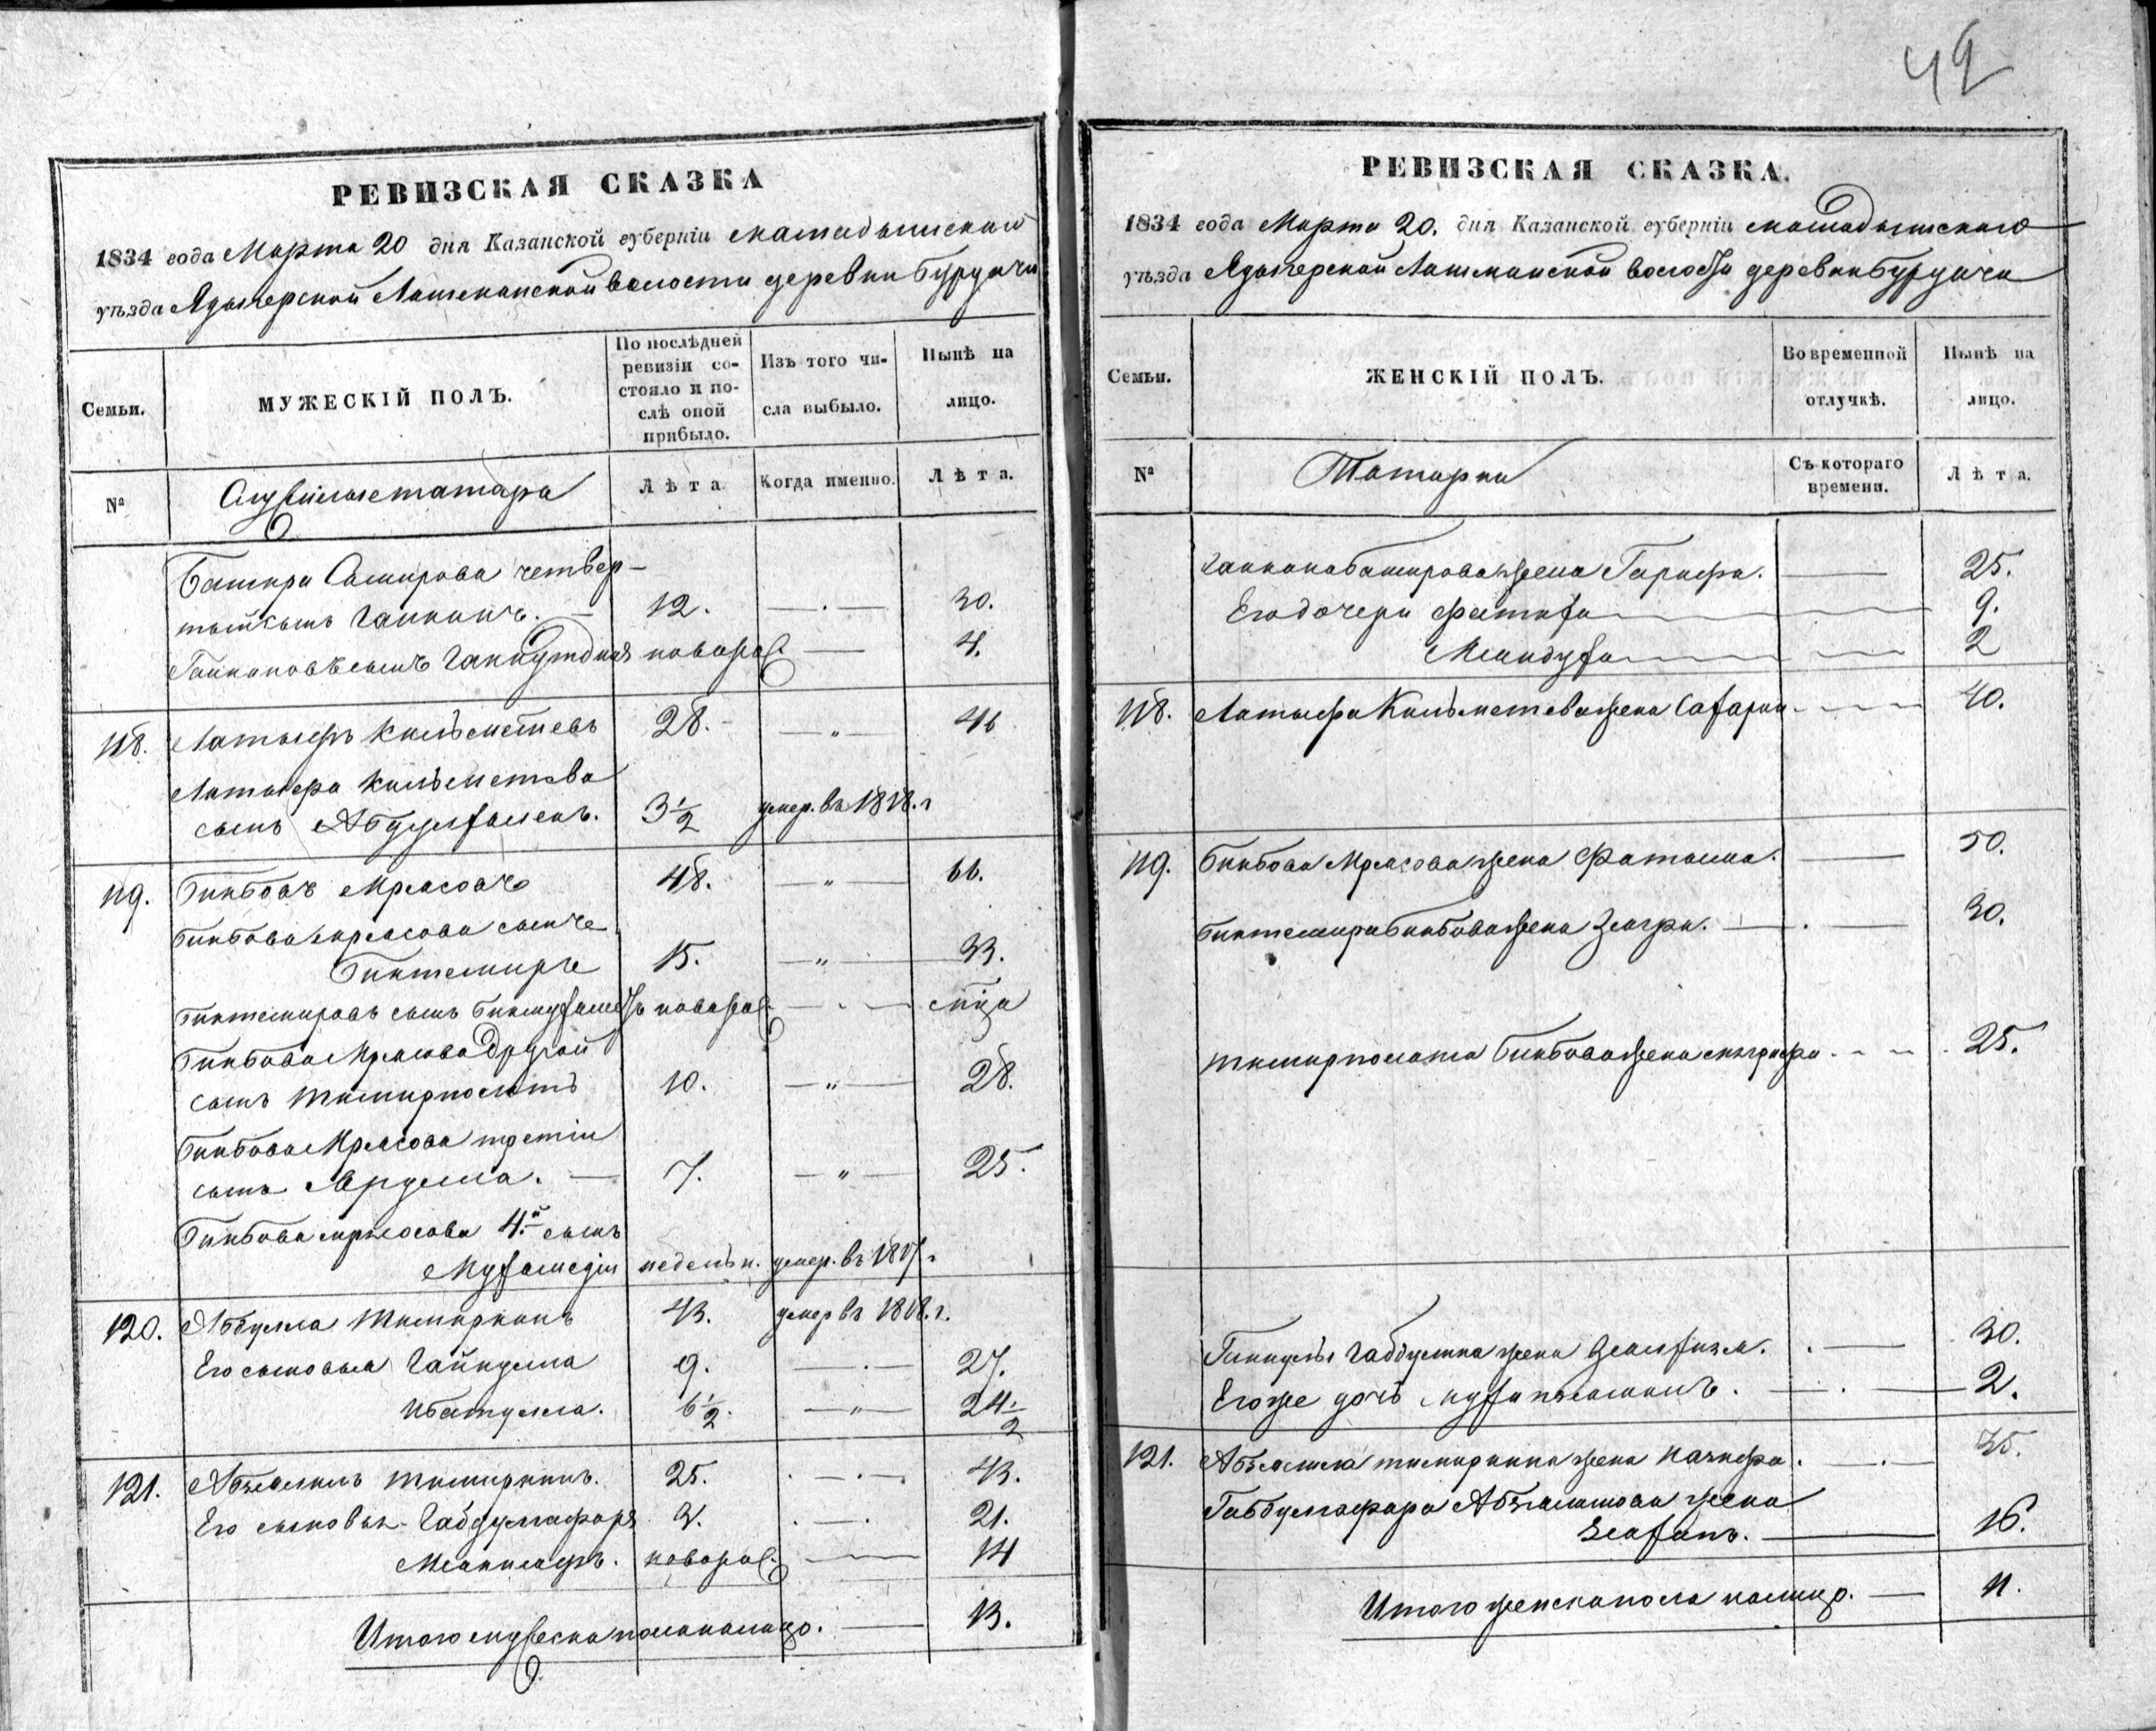 49
РЕВИЗСКАЯ СКАЗКА
1834 года Марта 20 дня Казанской губернiи мамадышскаго
уѣзда Адаерской Лашманской волости деревни Бурдачи
Семьи.
МУЖЕСКІЙ ПОЛЪ.
По послѣдней ревизіи состояло и послѣ оной прибыло.
Изъ того числа выбыло.
Нынѣ на лицо.
№
Служилые татара
Лѣта
Когда именно.
Лѣта.
Башира Самирова четвер-
тый сынъ Ганнанъ. — 12. — 30.
Ганнановъ сынъ новорож. — 4.
118. Латыфъ Кильметевъ 28. — " — 46
Латыфа Кильметева
сынъ Абдулженъ. 3½ умер. въ 1818. г
119. Бикбовъ Мрясовъ 48. — " — 66.
Бикбова Мрясова сынъ
Биктемиръ 15. — " — 33.
Биктемировъ сынъ новорож. — м-ца
Бикбова Мрясова другой
сынъ Тимирполатъ 10. — " — 28.
Бикбова Мрясова третiй
сынъ — 7. — " — 25.
Бикбова Мрясова 4.й сынъ
недель умер. въ г
120. Абдулла Тимиркинъ 43. умер въ 1818. г.
Его сыновья Гайнулла 9. — 27.
Ибатулла. 6½. — " — 24½
121. Абзялилъ Тимиркинъ. 25. — 43.
Его сыновья Габдулгафаръ 3. — 21.
новорож. — 14
Итого мужеска пола налицо. — 13.
РЕВИЗСКАЯ СКАЗКА.
1834 года Марта 20. дня Казанской губернiи мамадышскаго
уѣзда Адаерской Лашманской волости деревни Бурдачи
Семьи.
ЖЕНСКІЙ ПОЛЪ.
Во временной отлучкѣ.
Нынѣ на лицо.
№
Татарки
Съ котораго времени.
Лѣта.
Ганнана Баширова жена Гарифа. — 25.
Его дочери Фатиха — 9.
— 2
118. Латыфа Кильметева жена — 40.
119. Бикбова Мрясова жена Фатыма. — 50.
Биктемира Бикбова жена Зюгра. — 30.
Тимирполата Бикбова жена — 25.
Гайнуллы Габдуллина жена — 30.
Его же дочь — 2.
121. Абзялила Тимиркина жена — 35.
Габдулгафара Абзялилова жена
— 16.
Итого женска пола налицо. — 11.